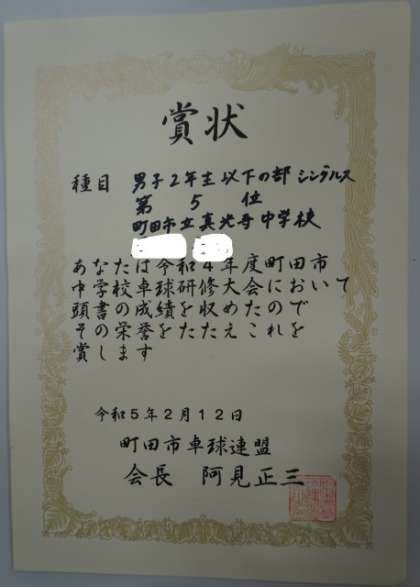 賞状
種目 男子2年生以下の部 シングルス
第 5 位
町田市立真光寺中学校
あなたは令和4年度町田市
中学校卓球研修大会において
頭書の成績を収めたので
その栄誉をたたえこれを
賞します
令和5年2月12日
町田市卓球連盟
会長 阿見正三